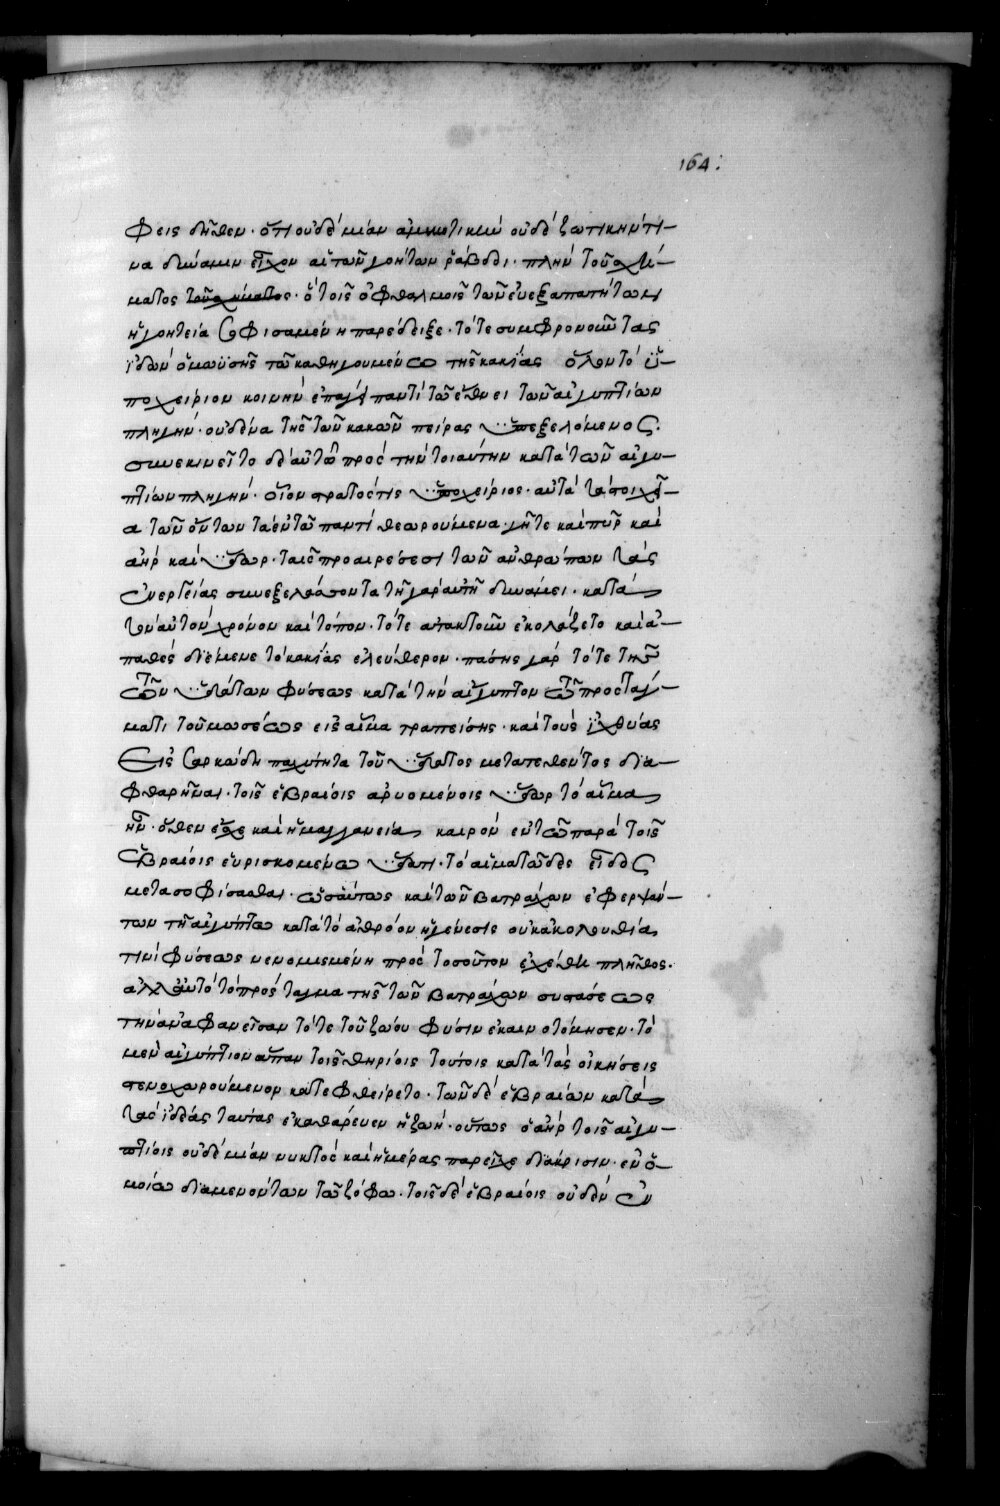 164:
φεις δῆθεν · ὅτι οὐδὲ μίαν ἀμυντικὴν οὐδὲ ζωτικὴν τί-
να δύναμιν εἶχον αἱ τῶν γοήτων ῥάβδοι · πλὴν τοῦ σχή-
ματος τοῦ σχήματος · ὃ τοῖς ὀφθαλμοῖς τῶν εὐεξαπατήτων
ἡ γοητεία σοφισαμένη παρέδειξε · τότε συμφρονοῦντας
ἰδὼν ὁ μωϋσῆς τῶ καθηγουμένω τῆς κακίας ὅλον τὸ ὑ-
ποχείριον κοινὴν ἐπάγει παντὶ τῶ ἔθνει τῶν αἰγυπτίων
πληγήν · οὐδένα τῆς τῶν κακῶν πείρας ὑπεξελόμενος.
συνεκινεῖτο δὲ αὐτῶ πρὸς τὴν τοιαύτην κατὰ τῶν αἰγυ-
πτίων πληγήν · οἷον στρατός τις ὑποχείριος · αὐτὰ τὰ στοιχεῖ-
α τῶν ὄντων τὰ ἐν τῶ παντὶ θεωρούμενα · γῆ τε καὶ πῦρ καὶ
ἀὴρ καὶ ὕδωρ · ταῖς προαιρέσεσι τῶν ἀνθρώπων τὰς
ἐνεργείας συνεξελάσσοντα τῆ γὰρ αὐτῆ δυνάμει · κατὰ
τὸν αὐτὸν χρόνον καὶ τόπον · τότε ἀτακτοῦν ἐκολάζετο καὶ ἀ-
παθὲς διέμενε τὸ κακίας ἐλεύθερον · πάσης γὰρ τότε τῆς
τῶν ὑδάτων φύσεως κατὰ τὴν αἴγυπτον τῶ προστάγ-
ματι τοῦ μωσέως εἰς αἷμα τραπείσης · καὶ τοὺς ἰχθύας
εἰς σαρκώδη παχύτητα τοῦ ὕδατος μεταπεθέντος δια-
φθαρῆναι · τοῖς ἑβραίοις ἀρυομένοις ὕδωρ τὸ αἷμα
ἦν · ὅθεν ἔσχε καὶ ἡ μαγγανεία καιρὸν ἐν τῶ παρὰ τοῖς
ἑβραίοις εὑρισκομένω ὕδατι · τὸ αἱματῶδες εἶδος
μετασοφίσασθαι · ὡσαύτως καὶ τῶν βατράχων ἐφερψάν-
των τῆ αἰγύπτω κατὰ τὸ ἀθρόον ἡ γένεσις οὐκ ἀκολουθία
τινὶ φύσεως νενομισμένη πρὸς τοσοῦτον ἐχέθη πλῆθος.
ἀλλ' αὐτὸ τὸ πρόσταγμα τῆς τῶν βατράχων συστάσεως
τὴν ἀναφανεῖσαν τότε τοῦ ζώου φύσιν ἐκαινοτόμησεν · τὸ
μὲν αἰγύπτιον ἅπαν τοῖς θηρίοις τούτοις κατὰ τὰς οἰκήσεις
στενοχωρούμενον κατεφθείρετο · τῶν δὲ ἑβραίων κατὰ
τὰς ἰδέας ταύτας ἐκαθάρευεν ἡ ζωή · οὕτως ὁ ἀὴρ τοῖς αἰγυ-
πτίοις οὐδὲ μίαν νυκτὸς καὶ ἡμέρας παρεῖχε διάκρισιν · ἐν ὁ-
μοίω διαμενόντων τῶ ζόφω · τοῖς δὲ ἑβραίοις οὐδὲν ἐν